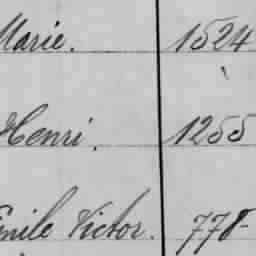 Marie. 1524
Henri. 1255
Emile Victor. 778-